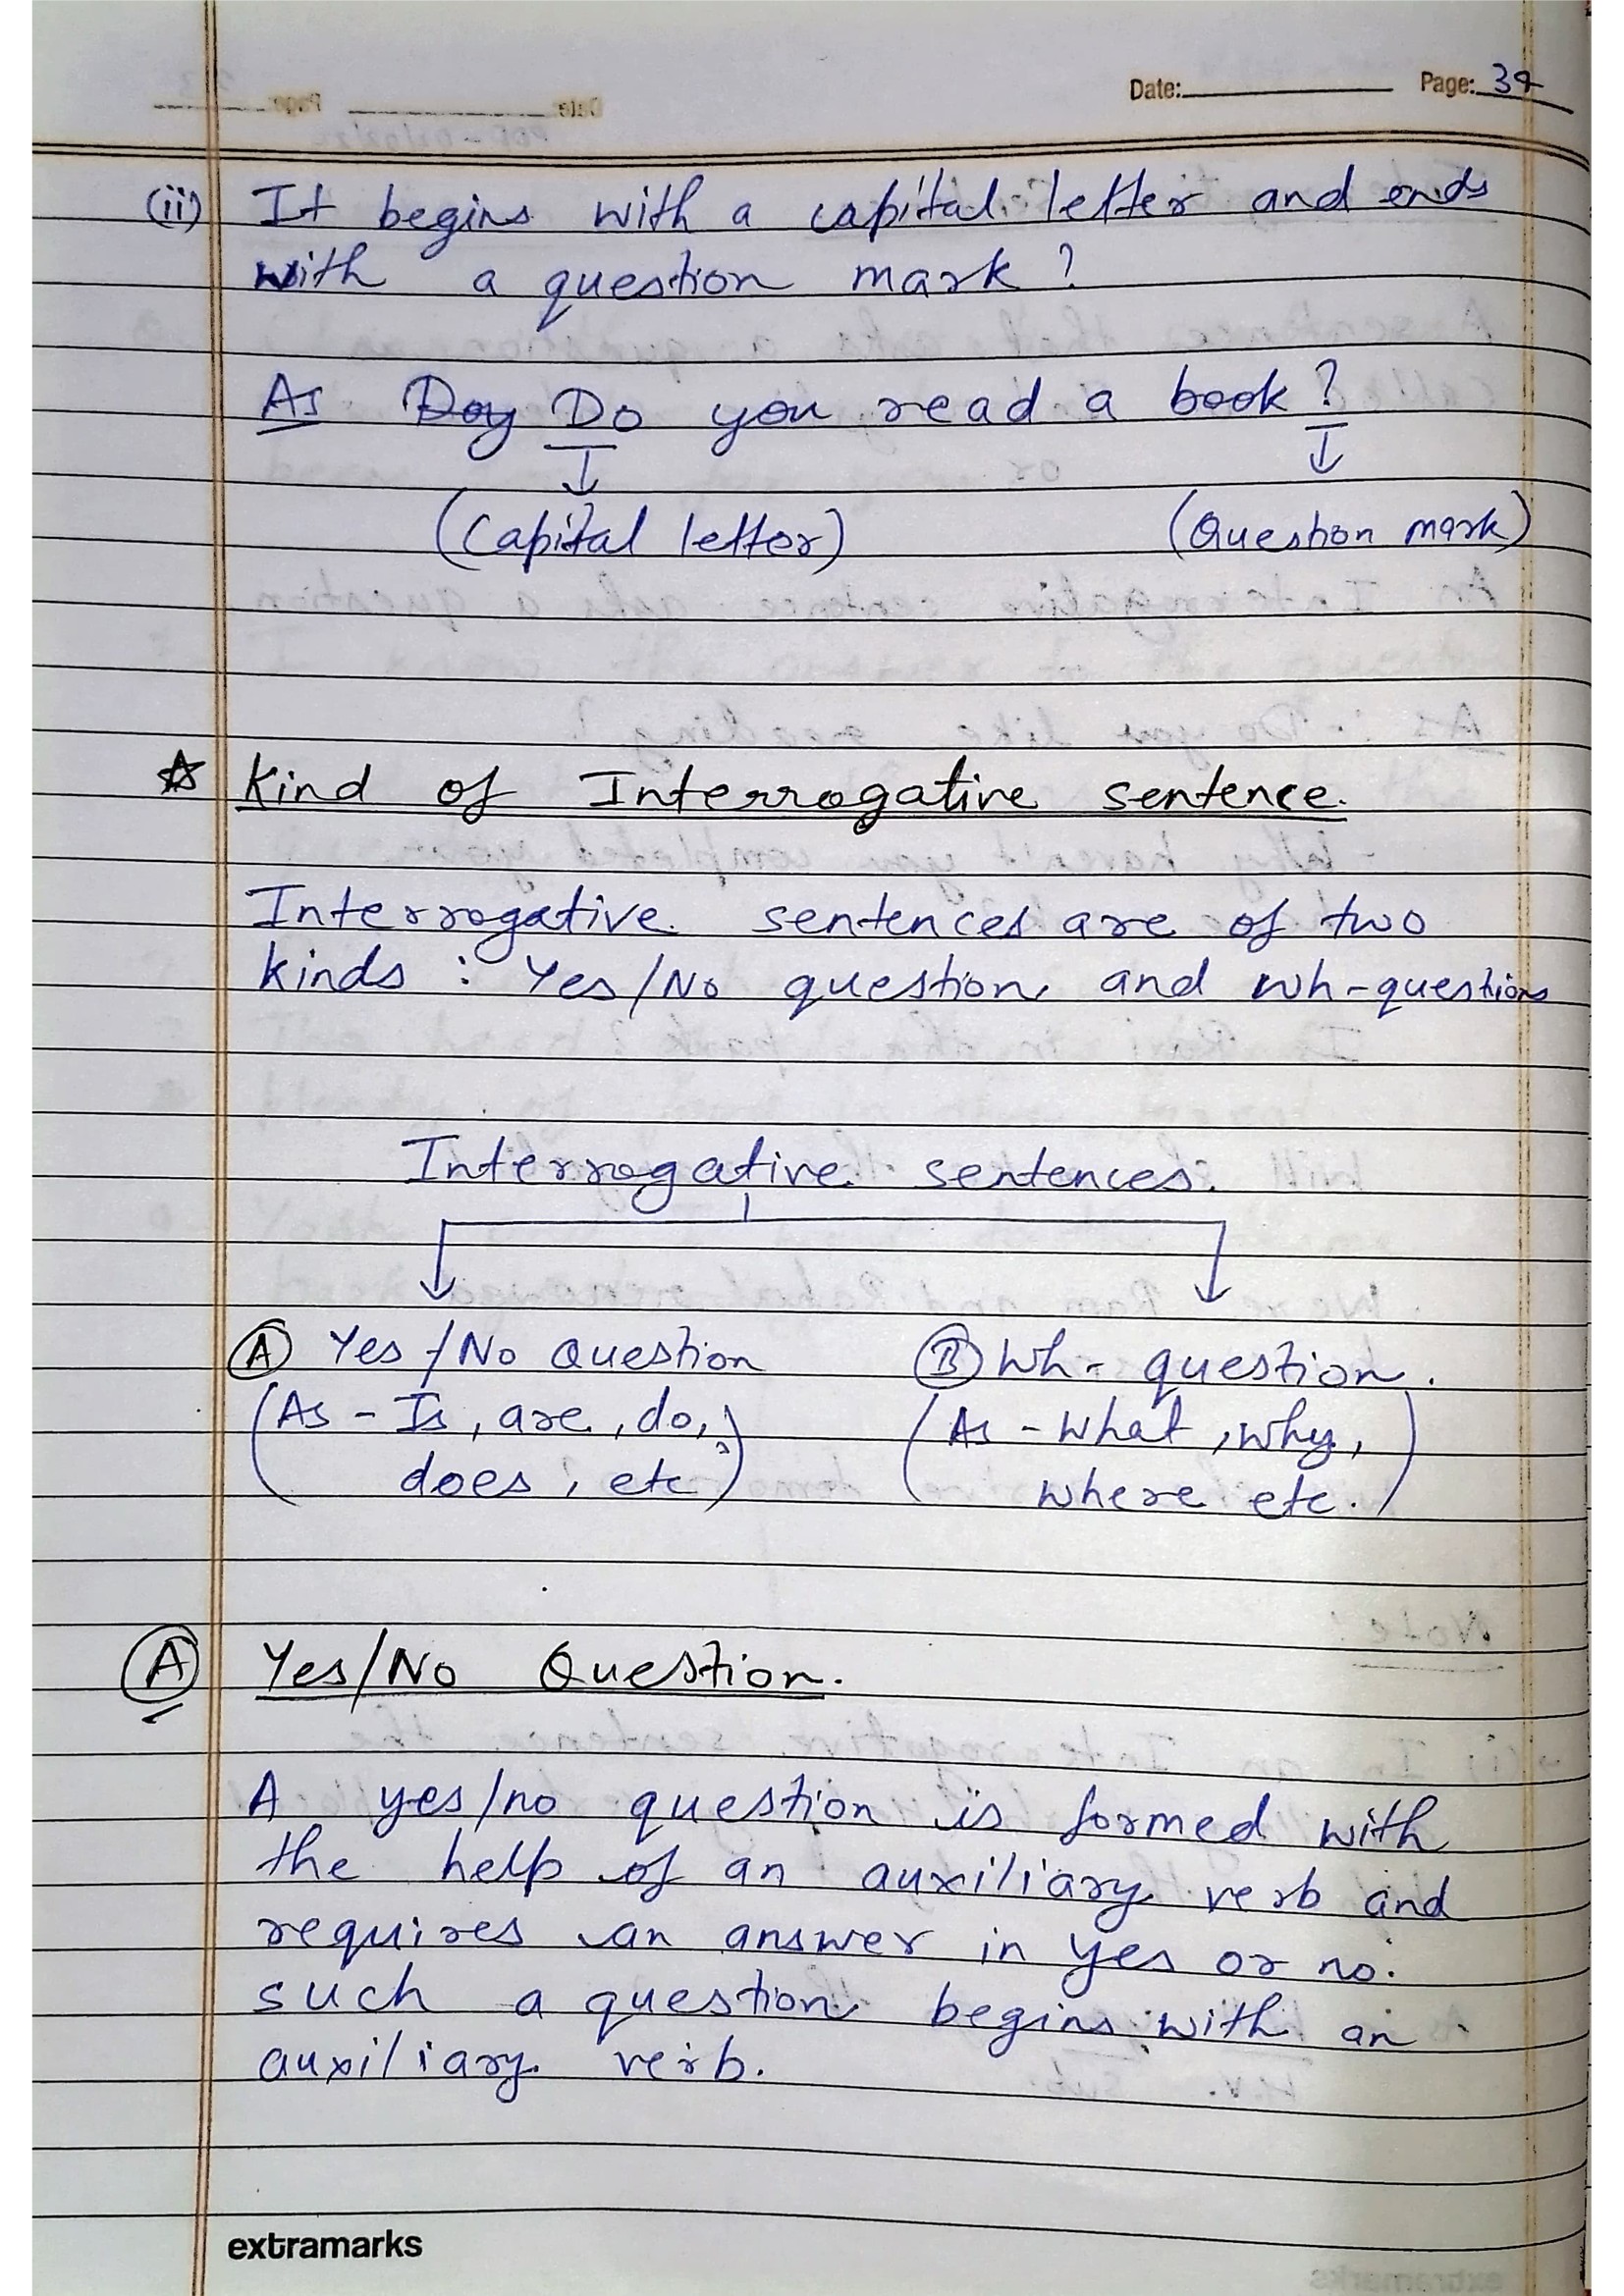 Date: Page: 34
(ii) It begins with a capital letter and ends
with a question mark ?
As Doy Do you read a book ?
(Capital letter) (Question mark)
☆ Kind of Interrogative sentence.
Interrogative sentences are of two
kinds : Yes/No question and wh-questions
Interrogative sentences.
Ⓐ Yes/No Question Ⓑ Wh- question.
(As - Is, are, do, (As - What, why,
does, etc) where etc.)
Ⓐ Yes/No Question.
A yes/no question is formed with
the help of an auxiliary verb and
requires an answer in yes or no.
such a question begins with an
auxiliary verb.
extramarks